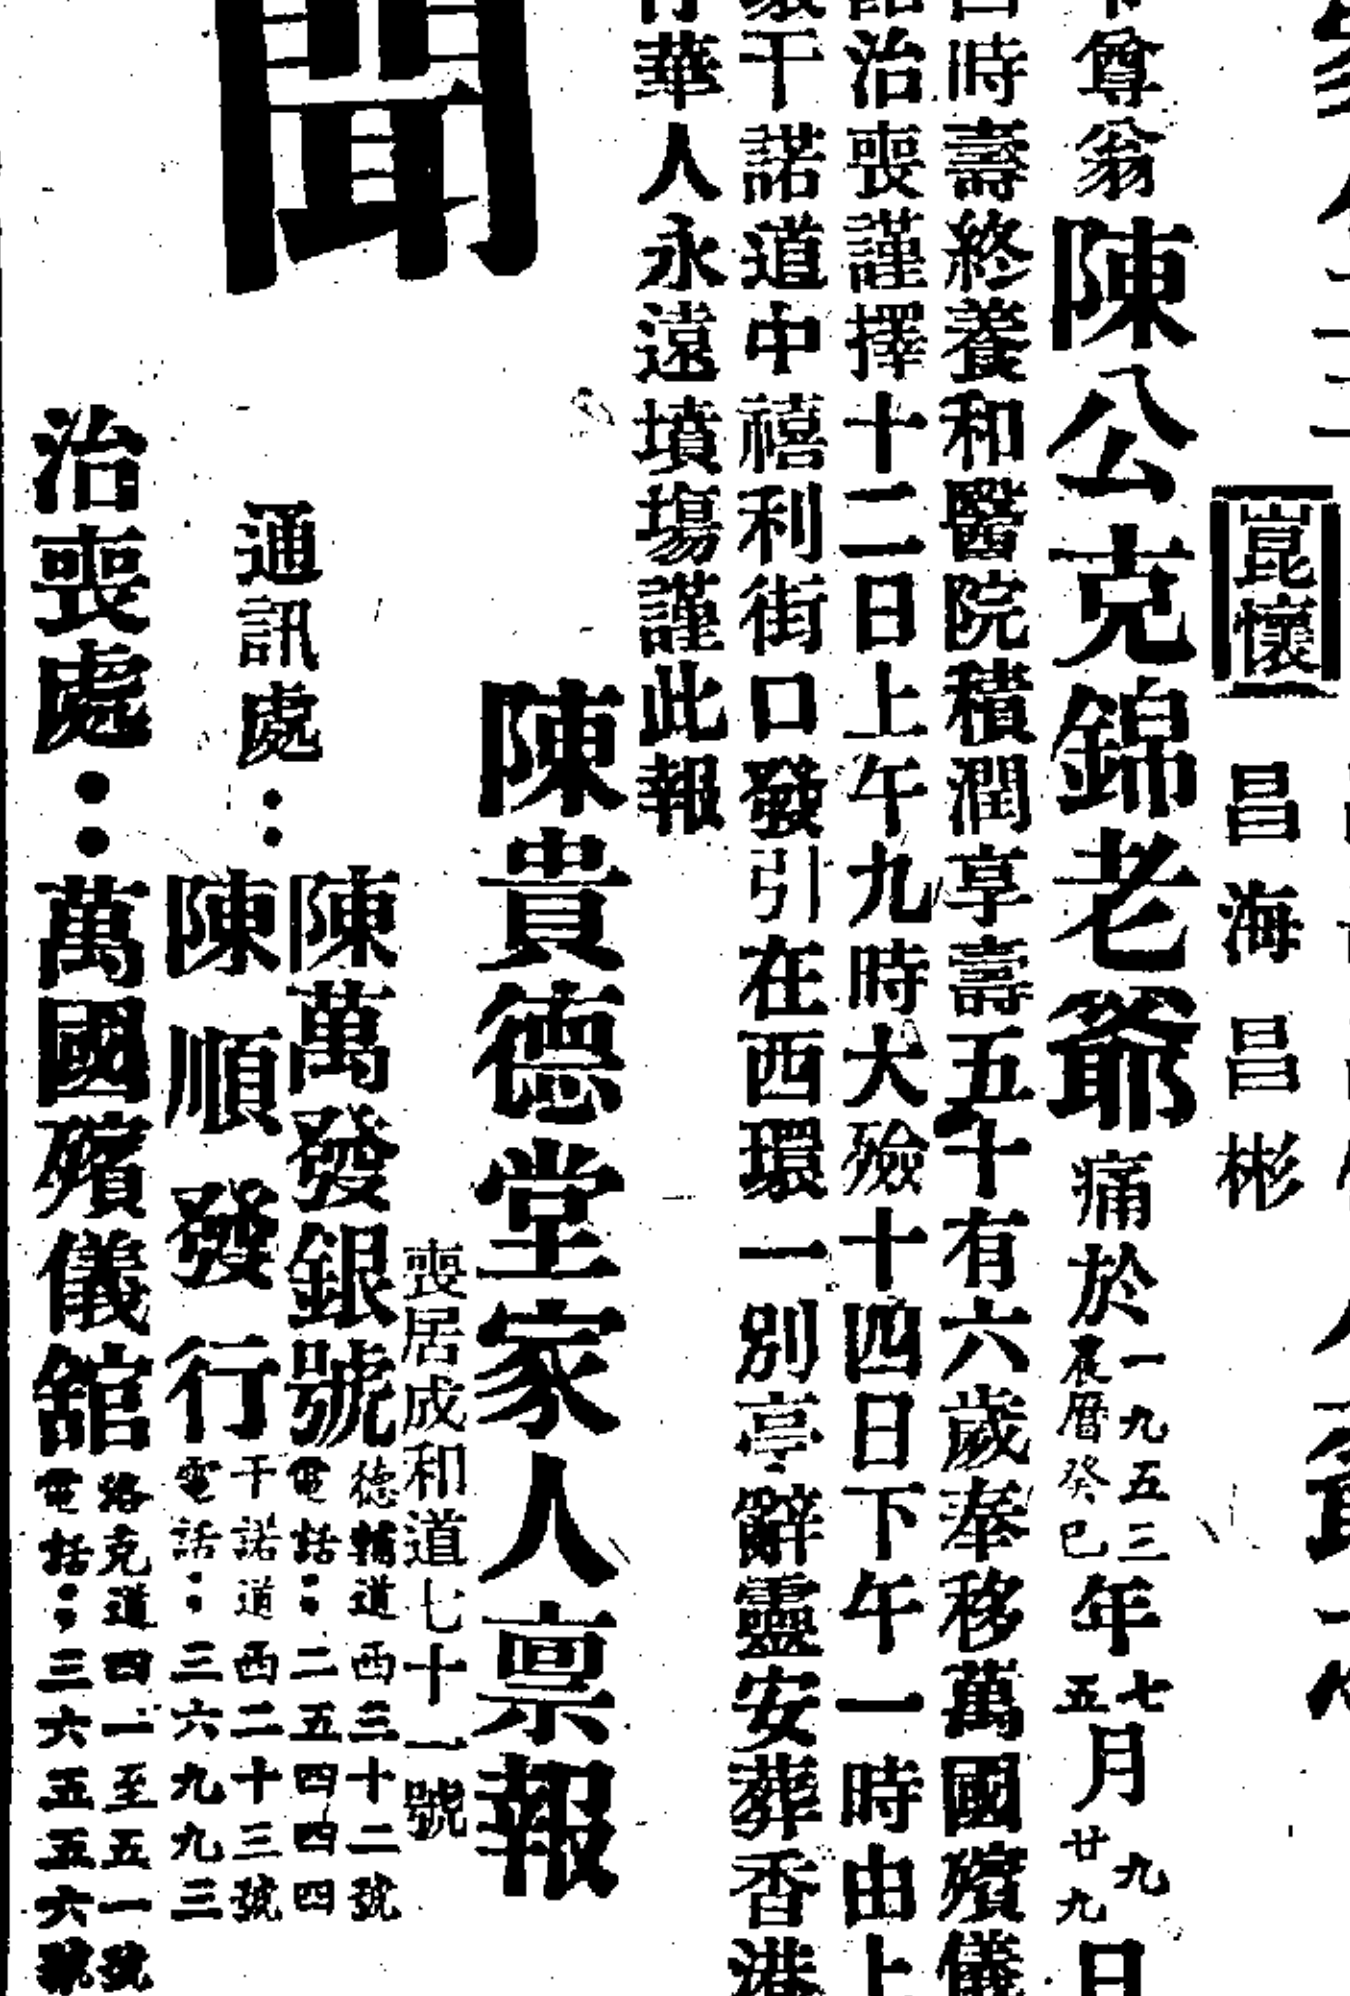 崑懷
昌海
昌彬
尊翁陳公克錦老爺痛於一九五三農曆癸巳年七五月九廿九日
時壽終養和醫院積潤享壽五十有六歲奉移萬國殯儀
治喪謹擇十二日上午九時大殮十四日下午一時由上
干諾道中禧利街口發引在西環一別亭辭靈安葬香港
華人永遠墳塲謹此報
聞
陳貴德堂家人稟報
喪居成和道七十一號
通訊處：
陳萬發銀號 德輔道西三十二號 電話：二五四四四
陳順發行 干諾道西二十三號 電話：三六九九三
治喪處：萬國殯儀舘 洛克道四一至五一號 電話：三六五五六號